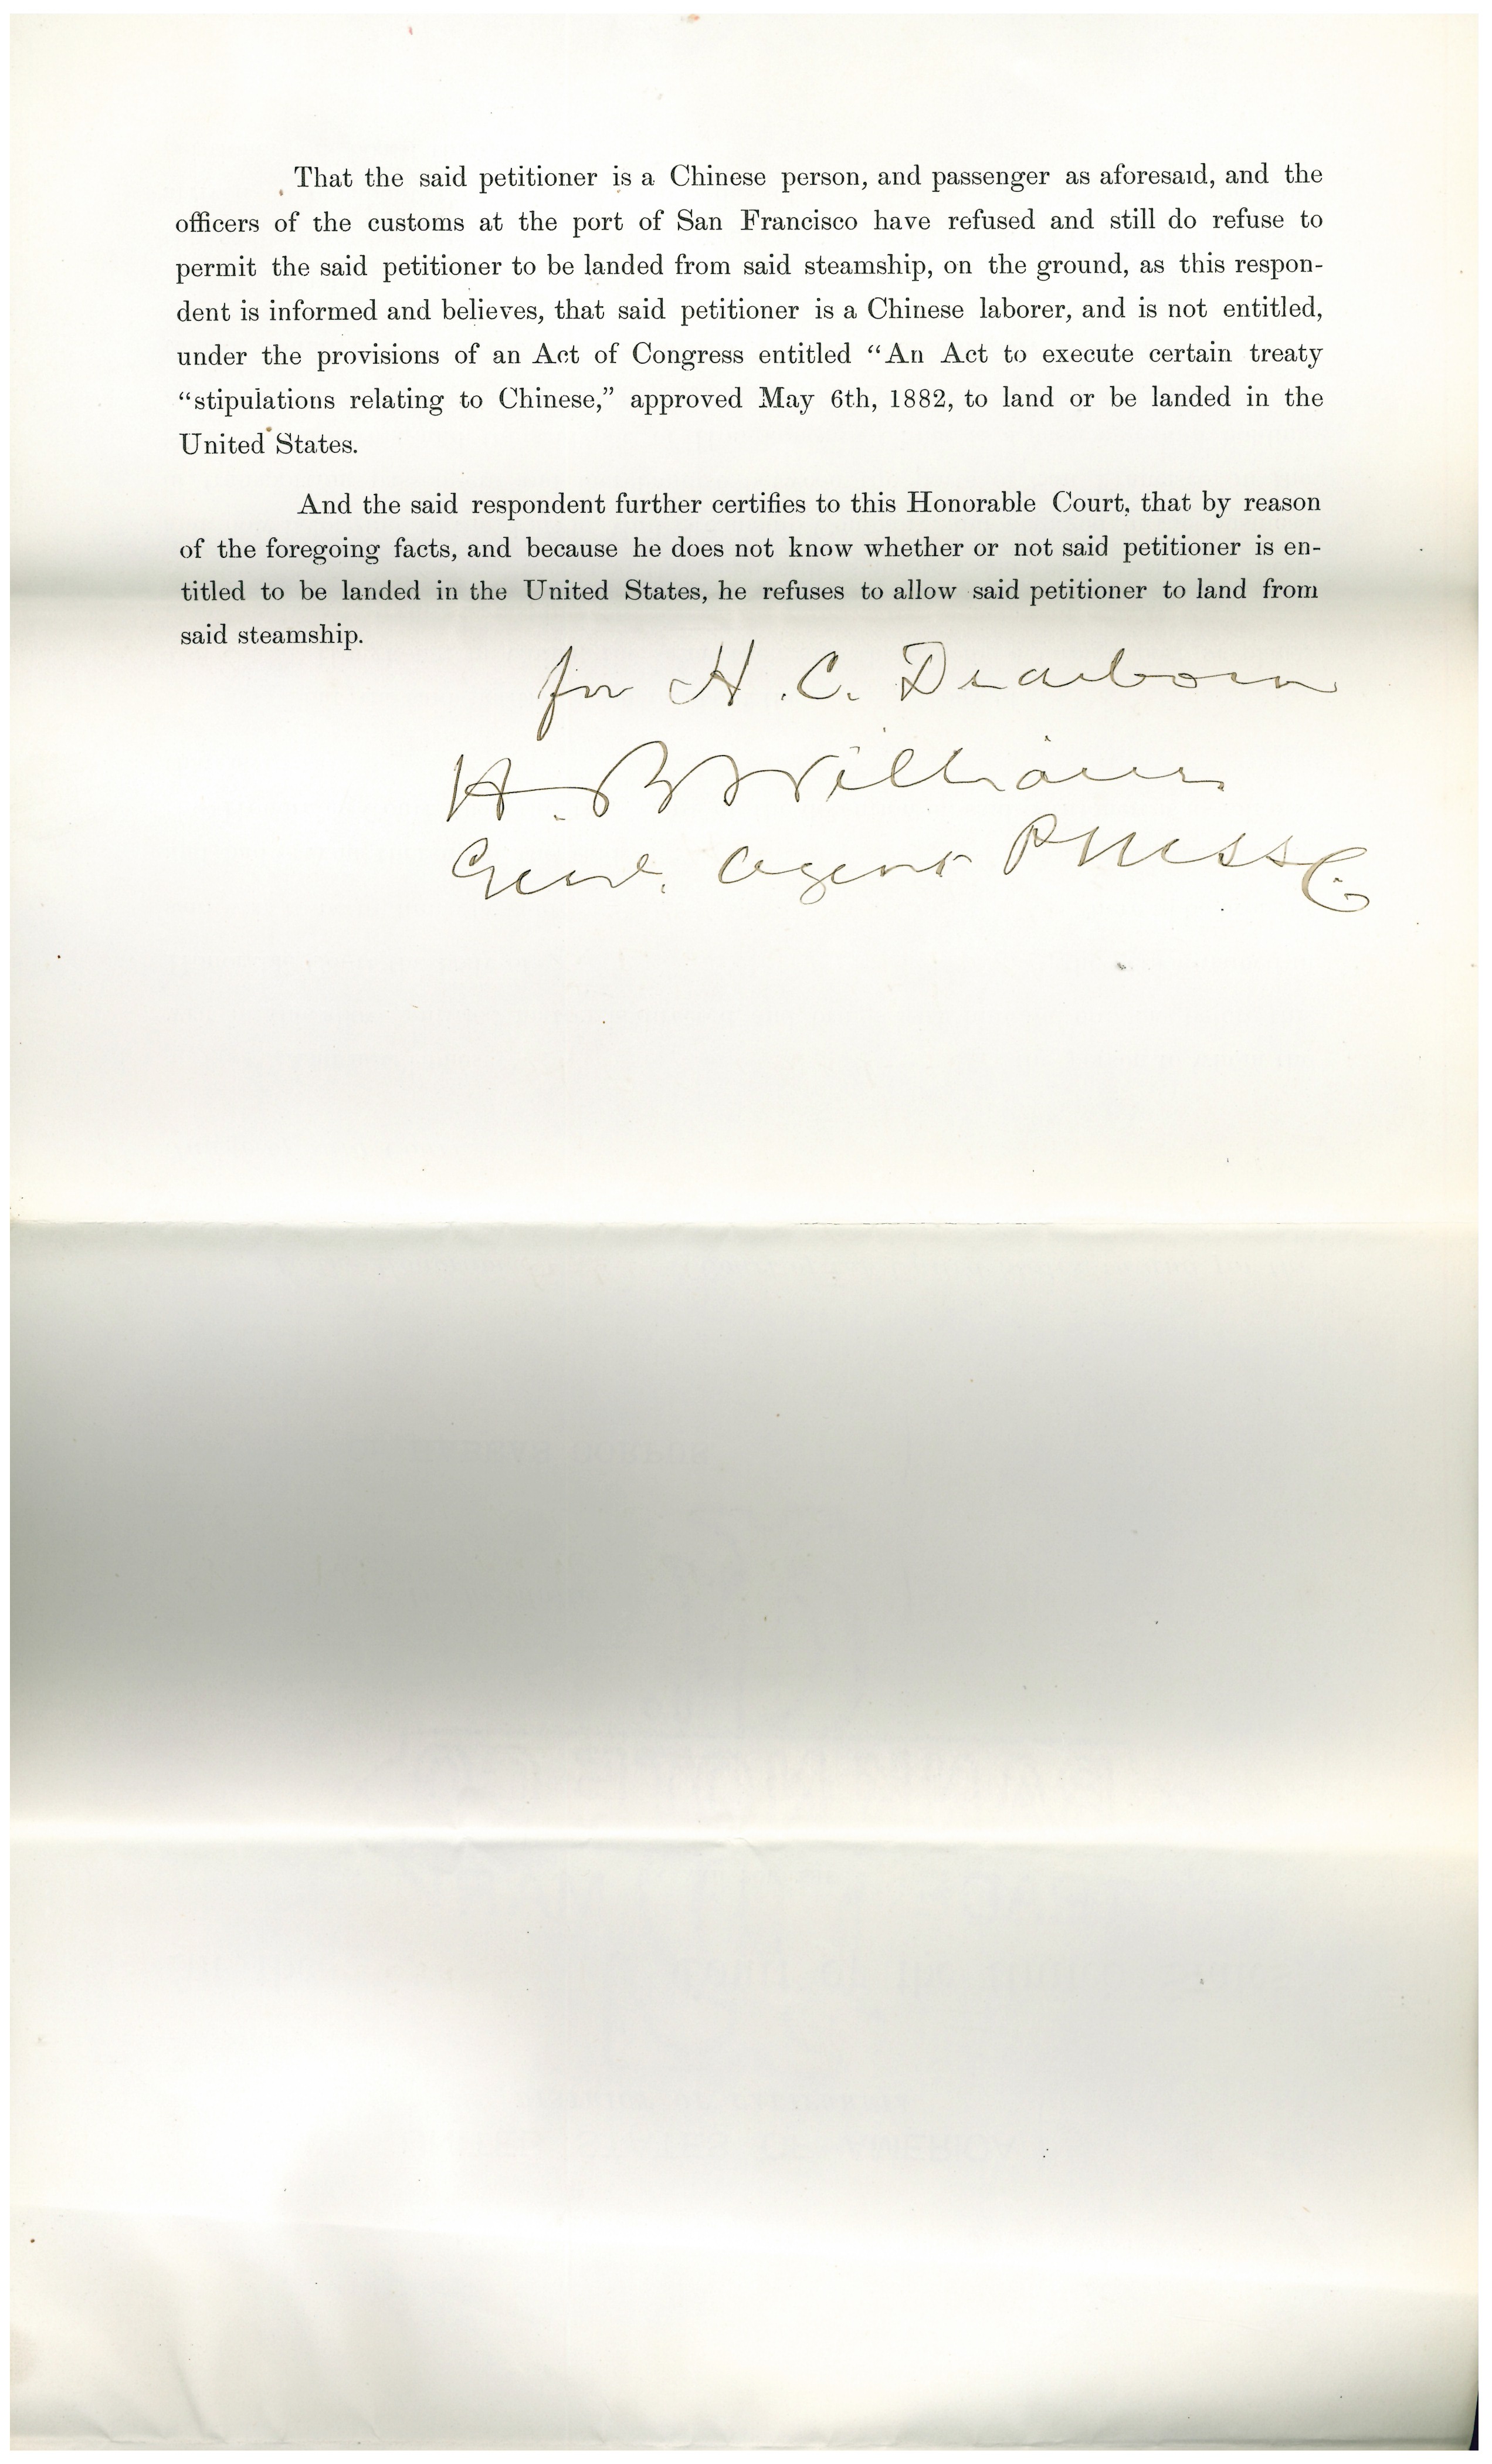 That the said petitioner is a Chinese person, and passenger as aforesaid, and the
officers of the customs at the port of San Francisco have refused and still do refuse to
permit the said petitioner to be landed from said steamship, on the ground, as this respon-
dent is informed and believes, that said petitioner is a Chinese laborer, and is not entitled,
under the provisions of an Act of Congress entitled “An Act to execute certain treaty
“stipulations relating to Chinese,” approved May 6th, 1882, to land or be landed in the
United States.
And the said respondent further certifies to this Honorable Court, that by reason
of the foregoing facts, and because he does not know whether or not said petitioner is en-
titled to be landed in the United States, he refuses to allow said petitioner to land from
said steamship.
for H. C. Dearborn
H. B. Williams
Genl. Agent PMSSC.